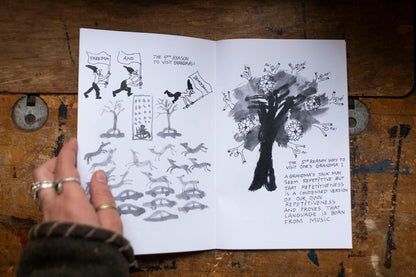 FREEDOM
AND
THE 4TH REASON
TO VISIT GRANDMA:
THE 5TH REASON WHY TO
VISIT ONE'S GRANDMA:
A GRANDMA'S TALK MAY
SEEM REPETITIVE BUT
THAT REPETITIVENESS
IS A CONDENSED VERSION
OF OUR OWN
REPETITIVENESS
AND PROVES THAT
LANGUAGE IS BORN
FROM MUSIC